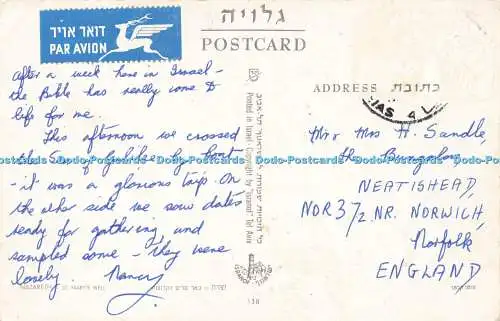 דואר אויר
PAR AVION
גלויה
POSTCARD
After a week here in Israel -
the Bible has really come to
life for me.
This afternoon we crossed
the Sea of Galilee by boat
- it was a glorious trip. On
the other side we saw dates
ready for gathering, and
sampled some - they were
lovely. Nancy
ADDRESS כתובת
Mr & Mrs H. Sandle,
The Bungalow,
NEATISHEAD,
NOR 37Z. NR. NORWICH,
Norfolk
ENGLAND
NAZARETH ST. MARY'S WELL
Printed in Israel Copyright by
Tel Aviv
Dodo-Postcards